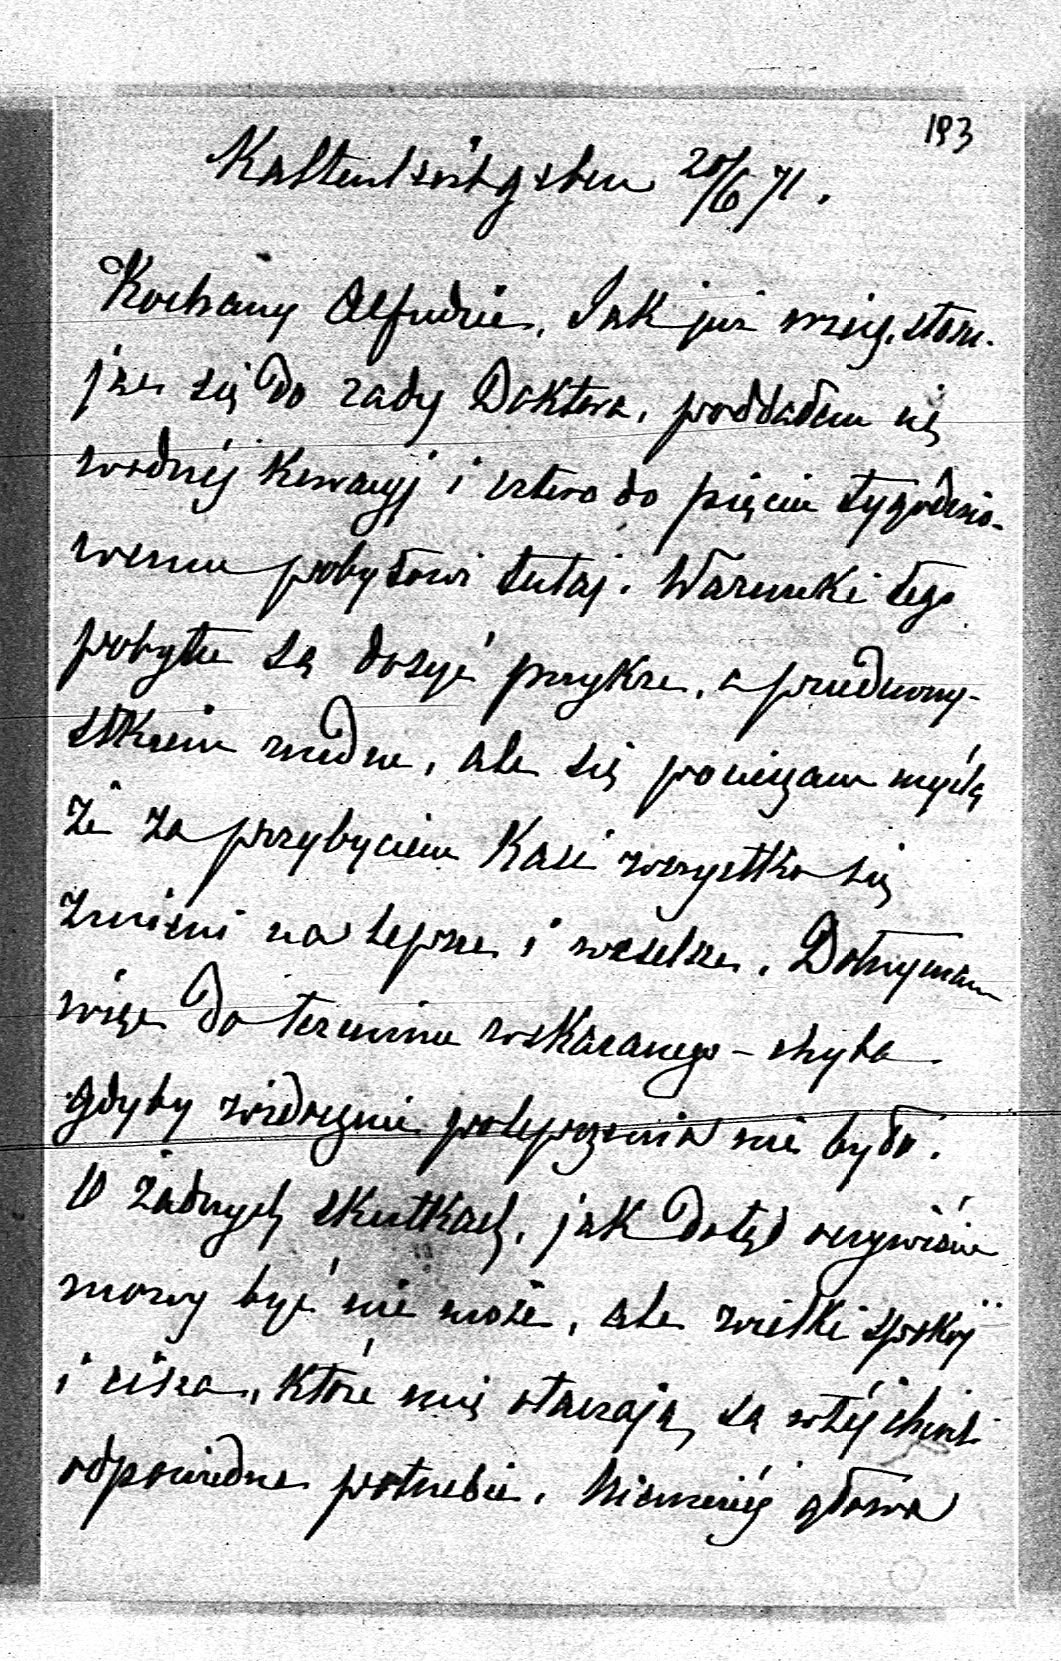 193
Kaltenleutgeben 20/6 71.
Kochany Alfredzie. Jak już wiesz, stosu-
jąc się do rady Doktora, poddałem się
wodnéj kuracyj i cztero do pięcio tygodnio-
wemu pobytowi tutaj. Warunki tego
pobytu są dosyć przykre, a przedewszy-
stkiem nudne, ale się pocieszam myślą
że za przybyciem Kasi wszystko się
zmieni na lepsze i weselsze. Dotrzymam
więc do terminu wskazanego – chyba
gdyby widocznie polepszenia nie było.
O żadnych skutkach, jak dotąd oczywiście
mowy być nie może, ale wielki spokój
i cisza, które mię otaczają, są w téj chwili
odpowiedne potrzebie. Niemniéj głowa